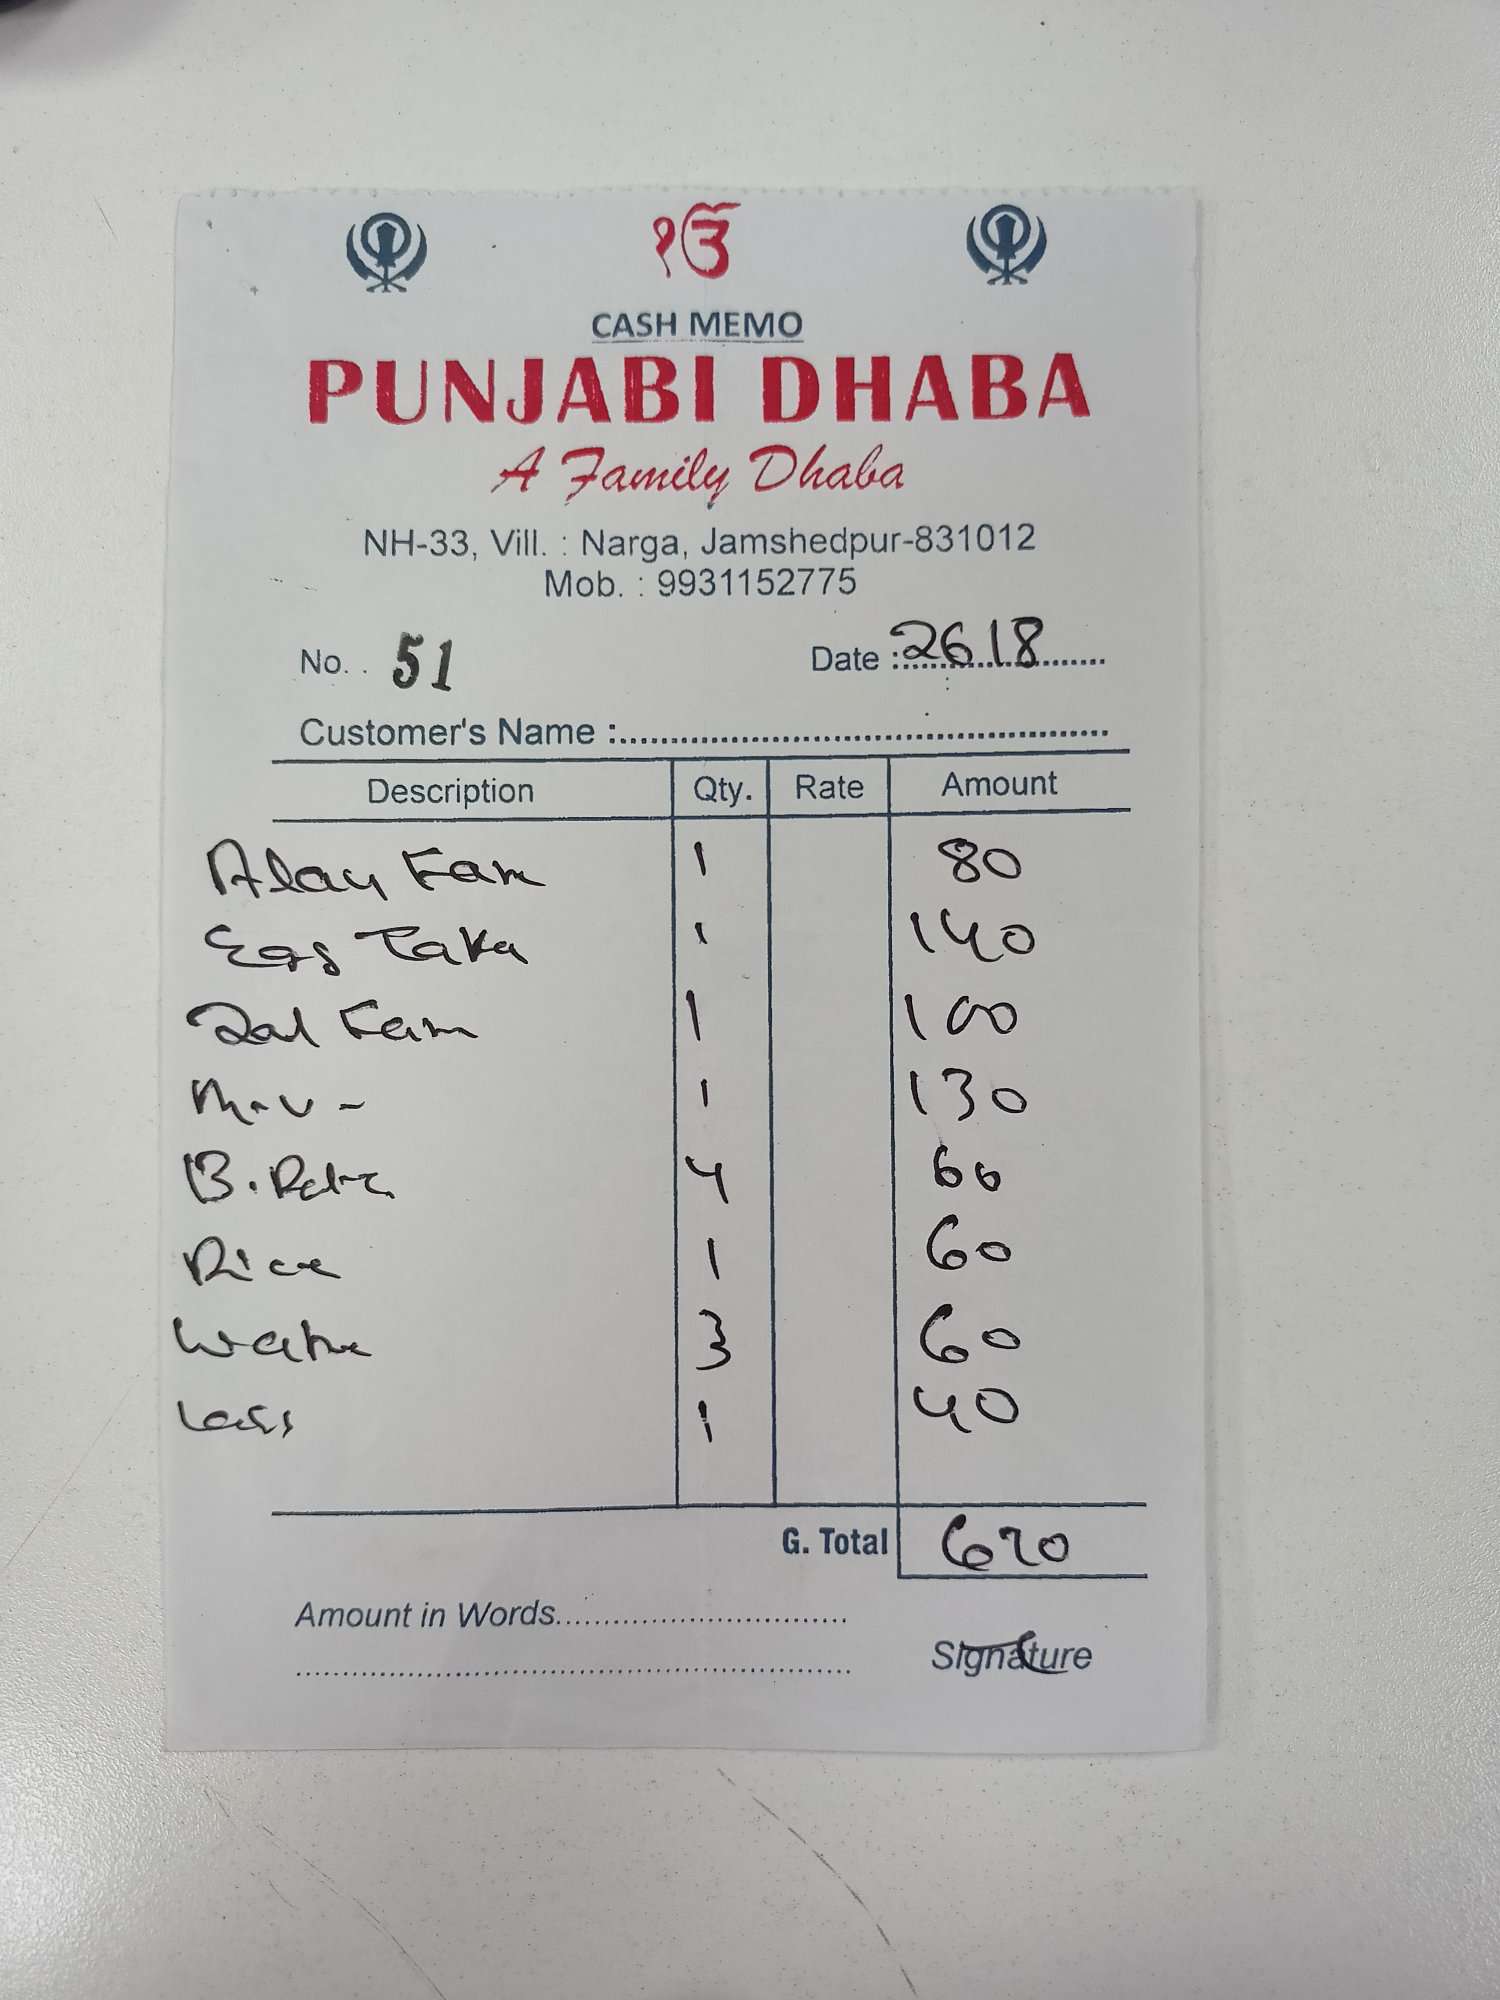 ੴ
CASH MEMO
PUNJABI DHABA
A Family Dhaba
NH-33, Vill. : Narga, Jamshedpur-831012
Mob. : 9931152775
No. . 51 Date : 26 18
Customer's Name :
Description Qty. Rate Amount
1 80
Egg Taka 1 140
Dal 1 100
M.V - 1 130
B. 4 60
Rice 1 60
Water 3 60
Lassi 1 40
G. Total 670
Amount in Words
Signature